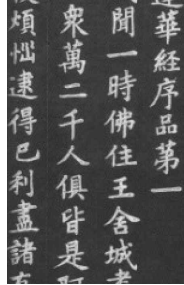 蓮華經序品第一
聞一時佛住王舍城耆
衆萬二千人俱皆是阿
煩惱逮得已利盡諸有